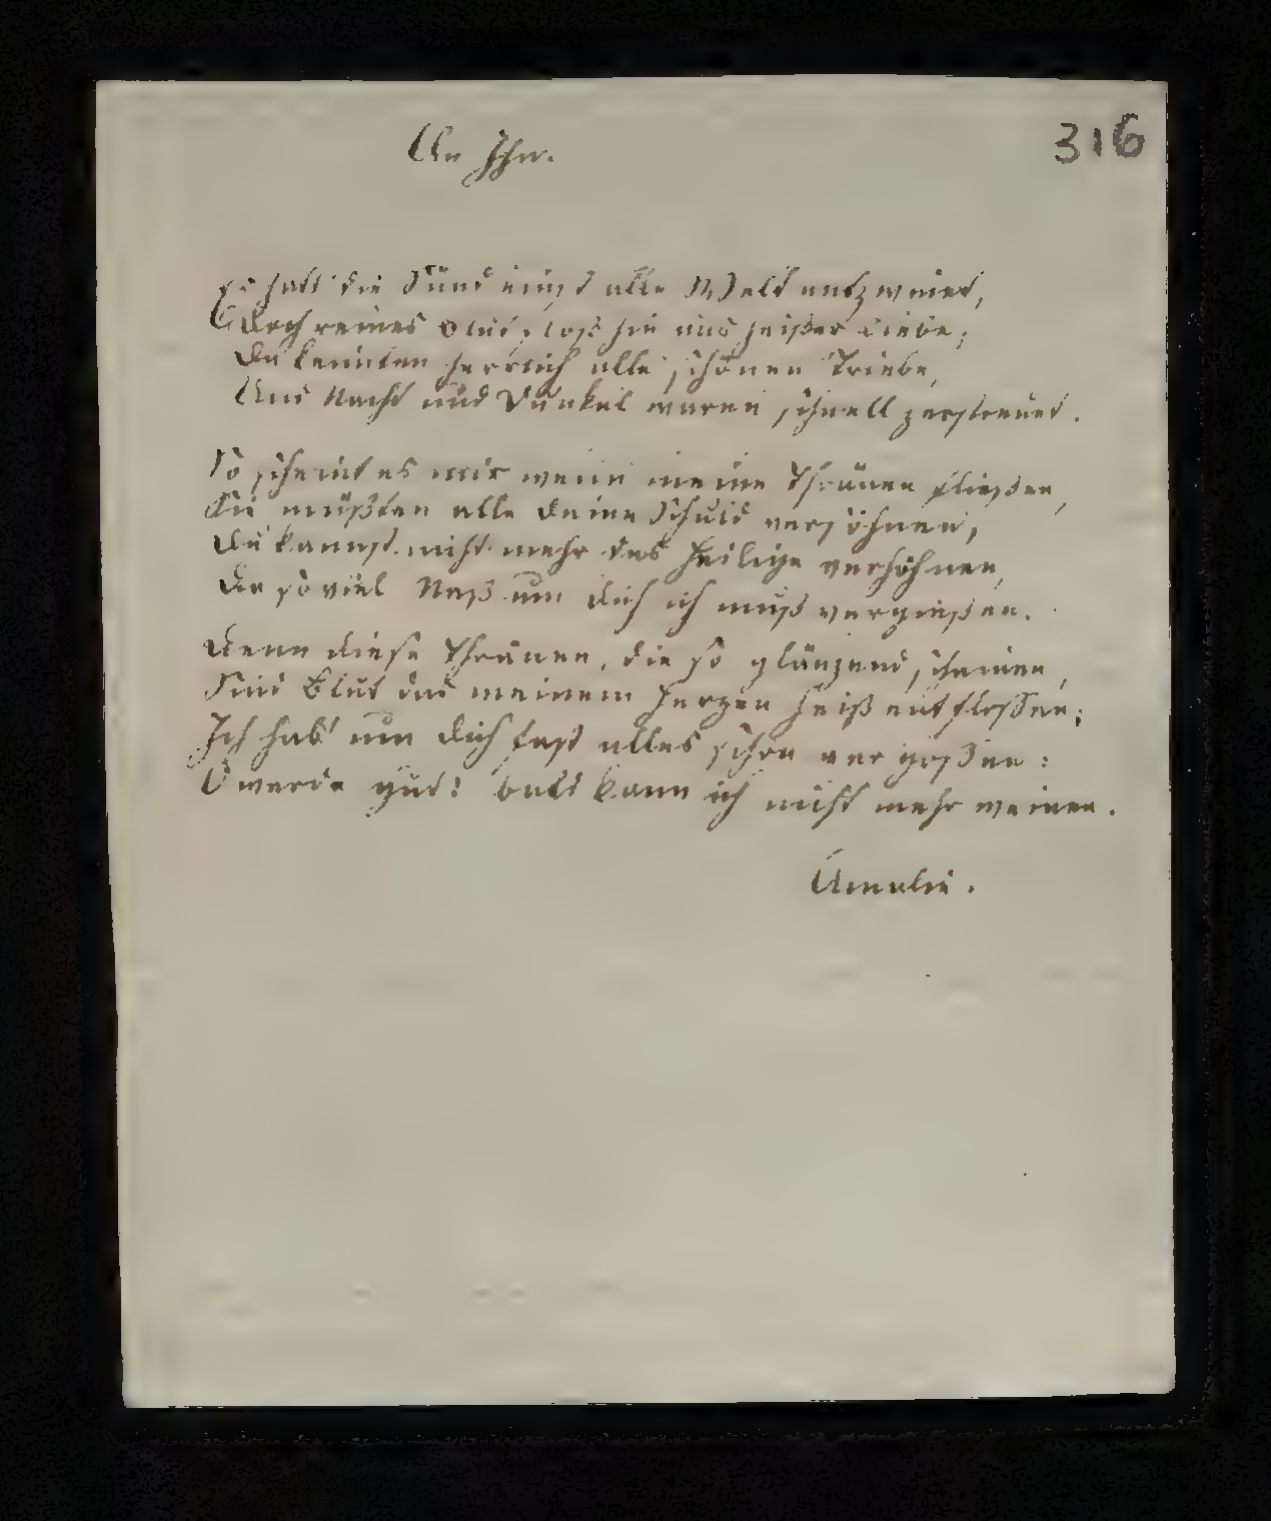 An Ihn.
316
Es hatt' die Sünd einst alle Welt entzweiet,
Doch reines Blut, floß hin aus heißer Liebe;
Da keimten herrlich alle schönen Triebe,
Und Nacht und Dunkel waren schnell zerstreuet.
So scheint es mir wenn meine Thränen fließen,
Sie müßten alle deine Schuld versöhnen,
Du kannst nicht mehr das Heilige verhöhnen,
Da so viel Naß um dich ich muß vergießen.
Denn diese Thränen, die so glänzend scheinen,
Sind Blut das meinem Herzen heiß entfloßen;
Ich hab' um dich fast alles schon vergoßen:
O werde gut! bald kann ich nicht mehr weinen.
Amalie.